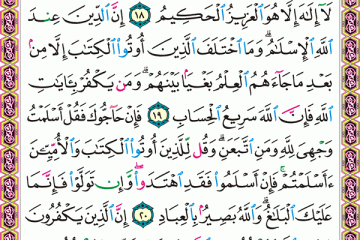 لَآ إِلَٰهَ إِلَّا هُوَ ٱلْعَزِيزُ ٱلْحَكِيمُ ١٨ إِنَّ ٱلدِّينَ عِندَ
ٱللَّهِ ٱلْإِسْلَٰمُ ۗ وَمَا ٱخْتَلَفَ ٱلَّذِينَ أُوتُوا۟ ٱلْكِتَٰبَ إِلَّا مِنۢ
بَعْدِ مَا جَآءَهُمُ ٱلْعِلْمُ بَغْيًۢا بَيْنَهُمْ ۗ وَمَن يَكْفُرْ بِـَٔايَٰتِ
ٱللَّهِ فَإِنَّ ٱللَّهَ سَرِيعُ ٱلْحِسَابِ ١٩ فَإِنْ حَآجُّوكَ فَقُلْ أَسْلَمْتُ
وَجْهِىَ لِلَّهِ وَمَنِ ٱتَّبَعَنِ ۗ وَقُل لِّلَّذِينَ أُوتُوا۟ ٱلْكِتَٰبَ وَٱلْأُمِّيِّـۧنَ
ءَأَسْلَمْتُمْ ۚ فَإِنْ أَسْلَمُوا۟ فَقَدِ ٱهْتَدَوا۟ ۖ وَّإِن تَوَلَّوْا۟ فَإِنَّمَا
عَلَيْكَ ٱلْبَلَٰغُ ۗ وَٱللَّهُ بَصِيرٌۢ بِٱلْعِبَادِ ٢٠ إِنَّ ٱلَّذِينَ يَكْفُرُونَ